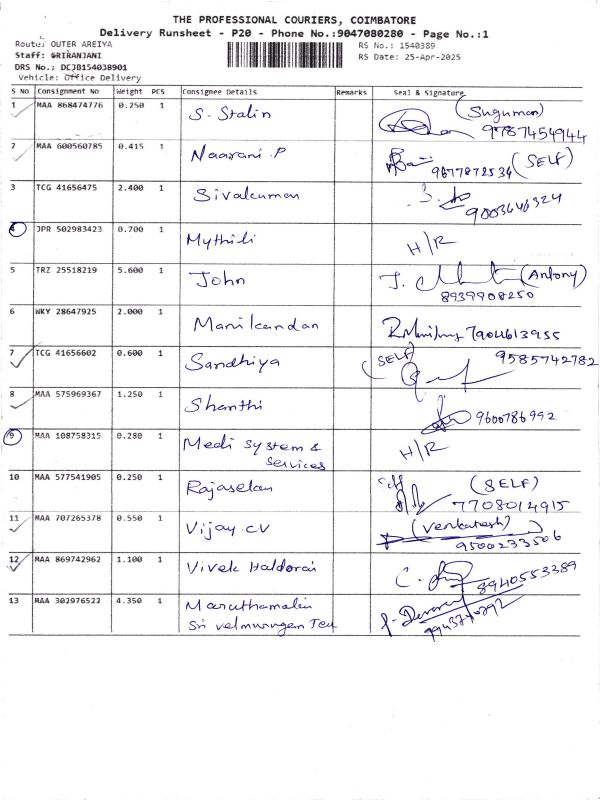 THE PROFESSIONAL COURIERS, COIMBATORE
Delivery Runsheet - P20 - Phone No.:9047080280 - Page No.:1
Route: OUTER AREIYA
RS No.: 1540389
Staff: SRIRANJANI
RS Date: 25-Apr-2025
DRS No.: DCJB154038901
Vehicle: Office Delivery
S No Consignment No Weight PCS Consignee Details Remarks Seal & Signature
1 MAA 868474776 0.250 1 S. Stalin (Suguman) 9787454944
2 MAA 600560785 0.415 1 Naarani.P 9677872534 (SELF)
3 TCG 41656475 2.400 1 Sivakumar 9003646324
4 JPR 502983423 0.700 1 Mythili H/R
5 TRZ 25518219 5.600 1 John J. (Antony)
8939908250
6 WKY 28647925 2.000 1 Manikandan 7904613955
7 TCG 41656602 0.600 1 Sandhiya (SELF) 9585742782
8 MAA 575969367 1.250 1 Shanthi 9600786992
9 MAA 108758315 0.280 1 Medi System &
Services H/R
10 MAA 577541905 0.250 1 Rajaselan (SELF)
7708014915
11 MAA 707265378 0.550 1 Vijay.CV (Venkatesh)
9500233506
12 MAA 869742962 1.100 1 Vivek Haldorai 8940553389
13 MAA 302976522 4.350 1 Maruthamalai
Sri velmurugan Tex